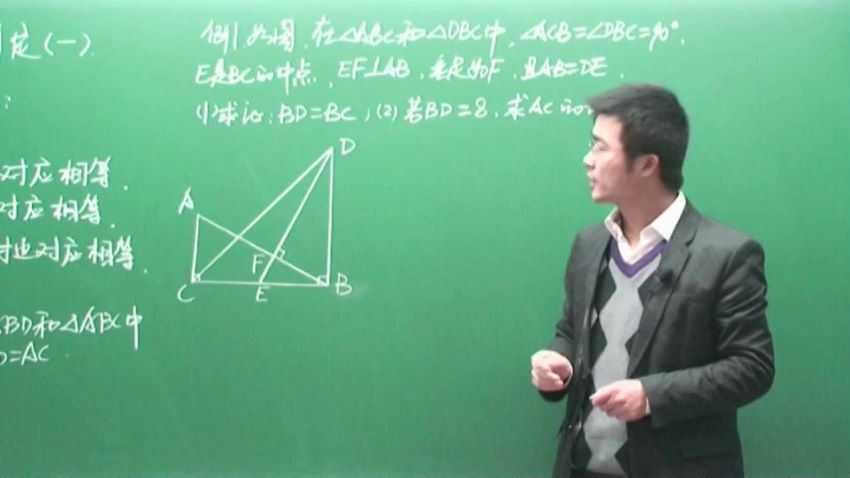 定(一).
例1.如图,在△ABC和△DBC中,∠ACB=∠DBC=90°,
E是BC的中点,EF⊥AB,垂足为F,且AB=DE.
(1)求证:BD=BC;(2)若BD=8,求AC的
对应相等.
对应相等.
对边对应相等.
BD和△ABC中
=AC.
D
A
F
C
E
B